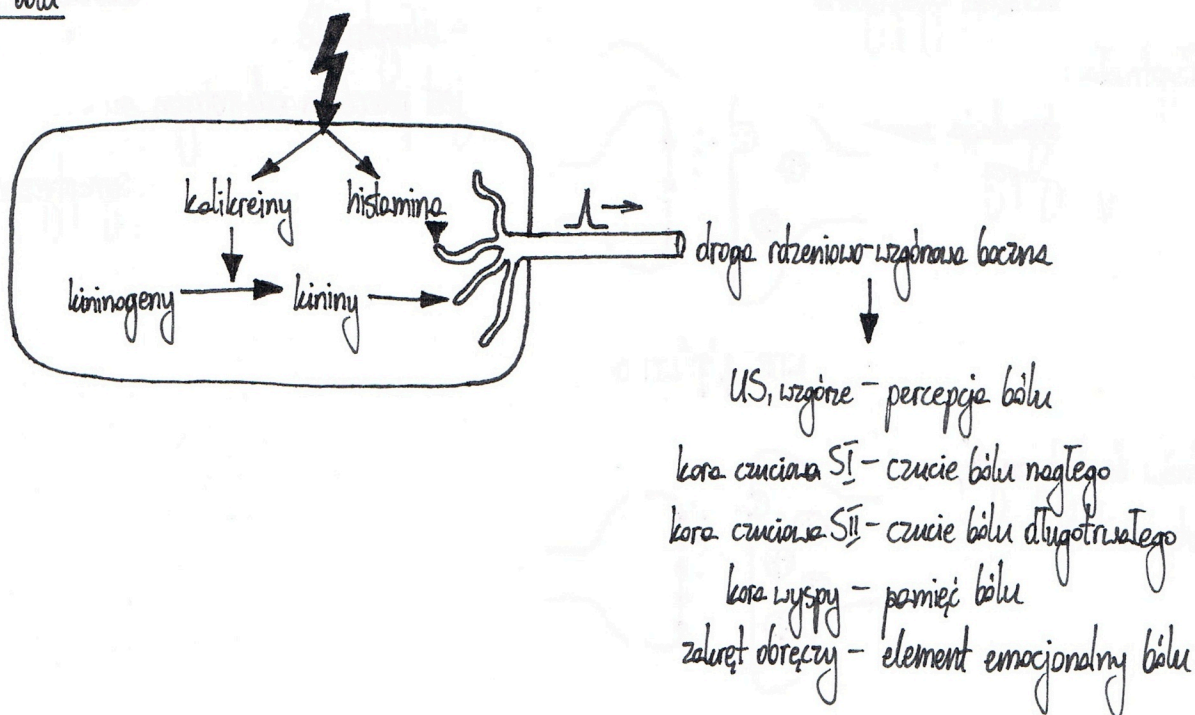 bólu
kalikreiny histamina
kininogeny kininy
droga rdzeniowo-wzgórzowa boczna
US, wzgórze – percepcja bólu
kora czuciowa SI – czucie bólu nagłego
kora czuciowa SII – czucie bólu długotrwałego
kora wyspy – pamięć bólu
zakręt obręczy – element emocjonalny bólu